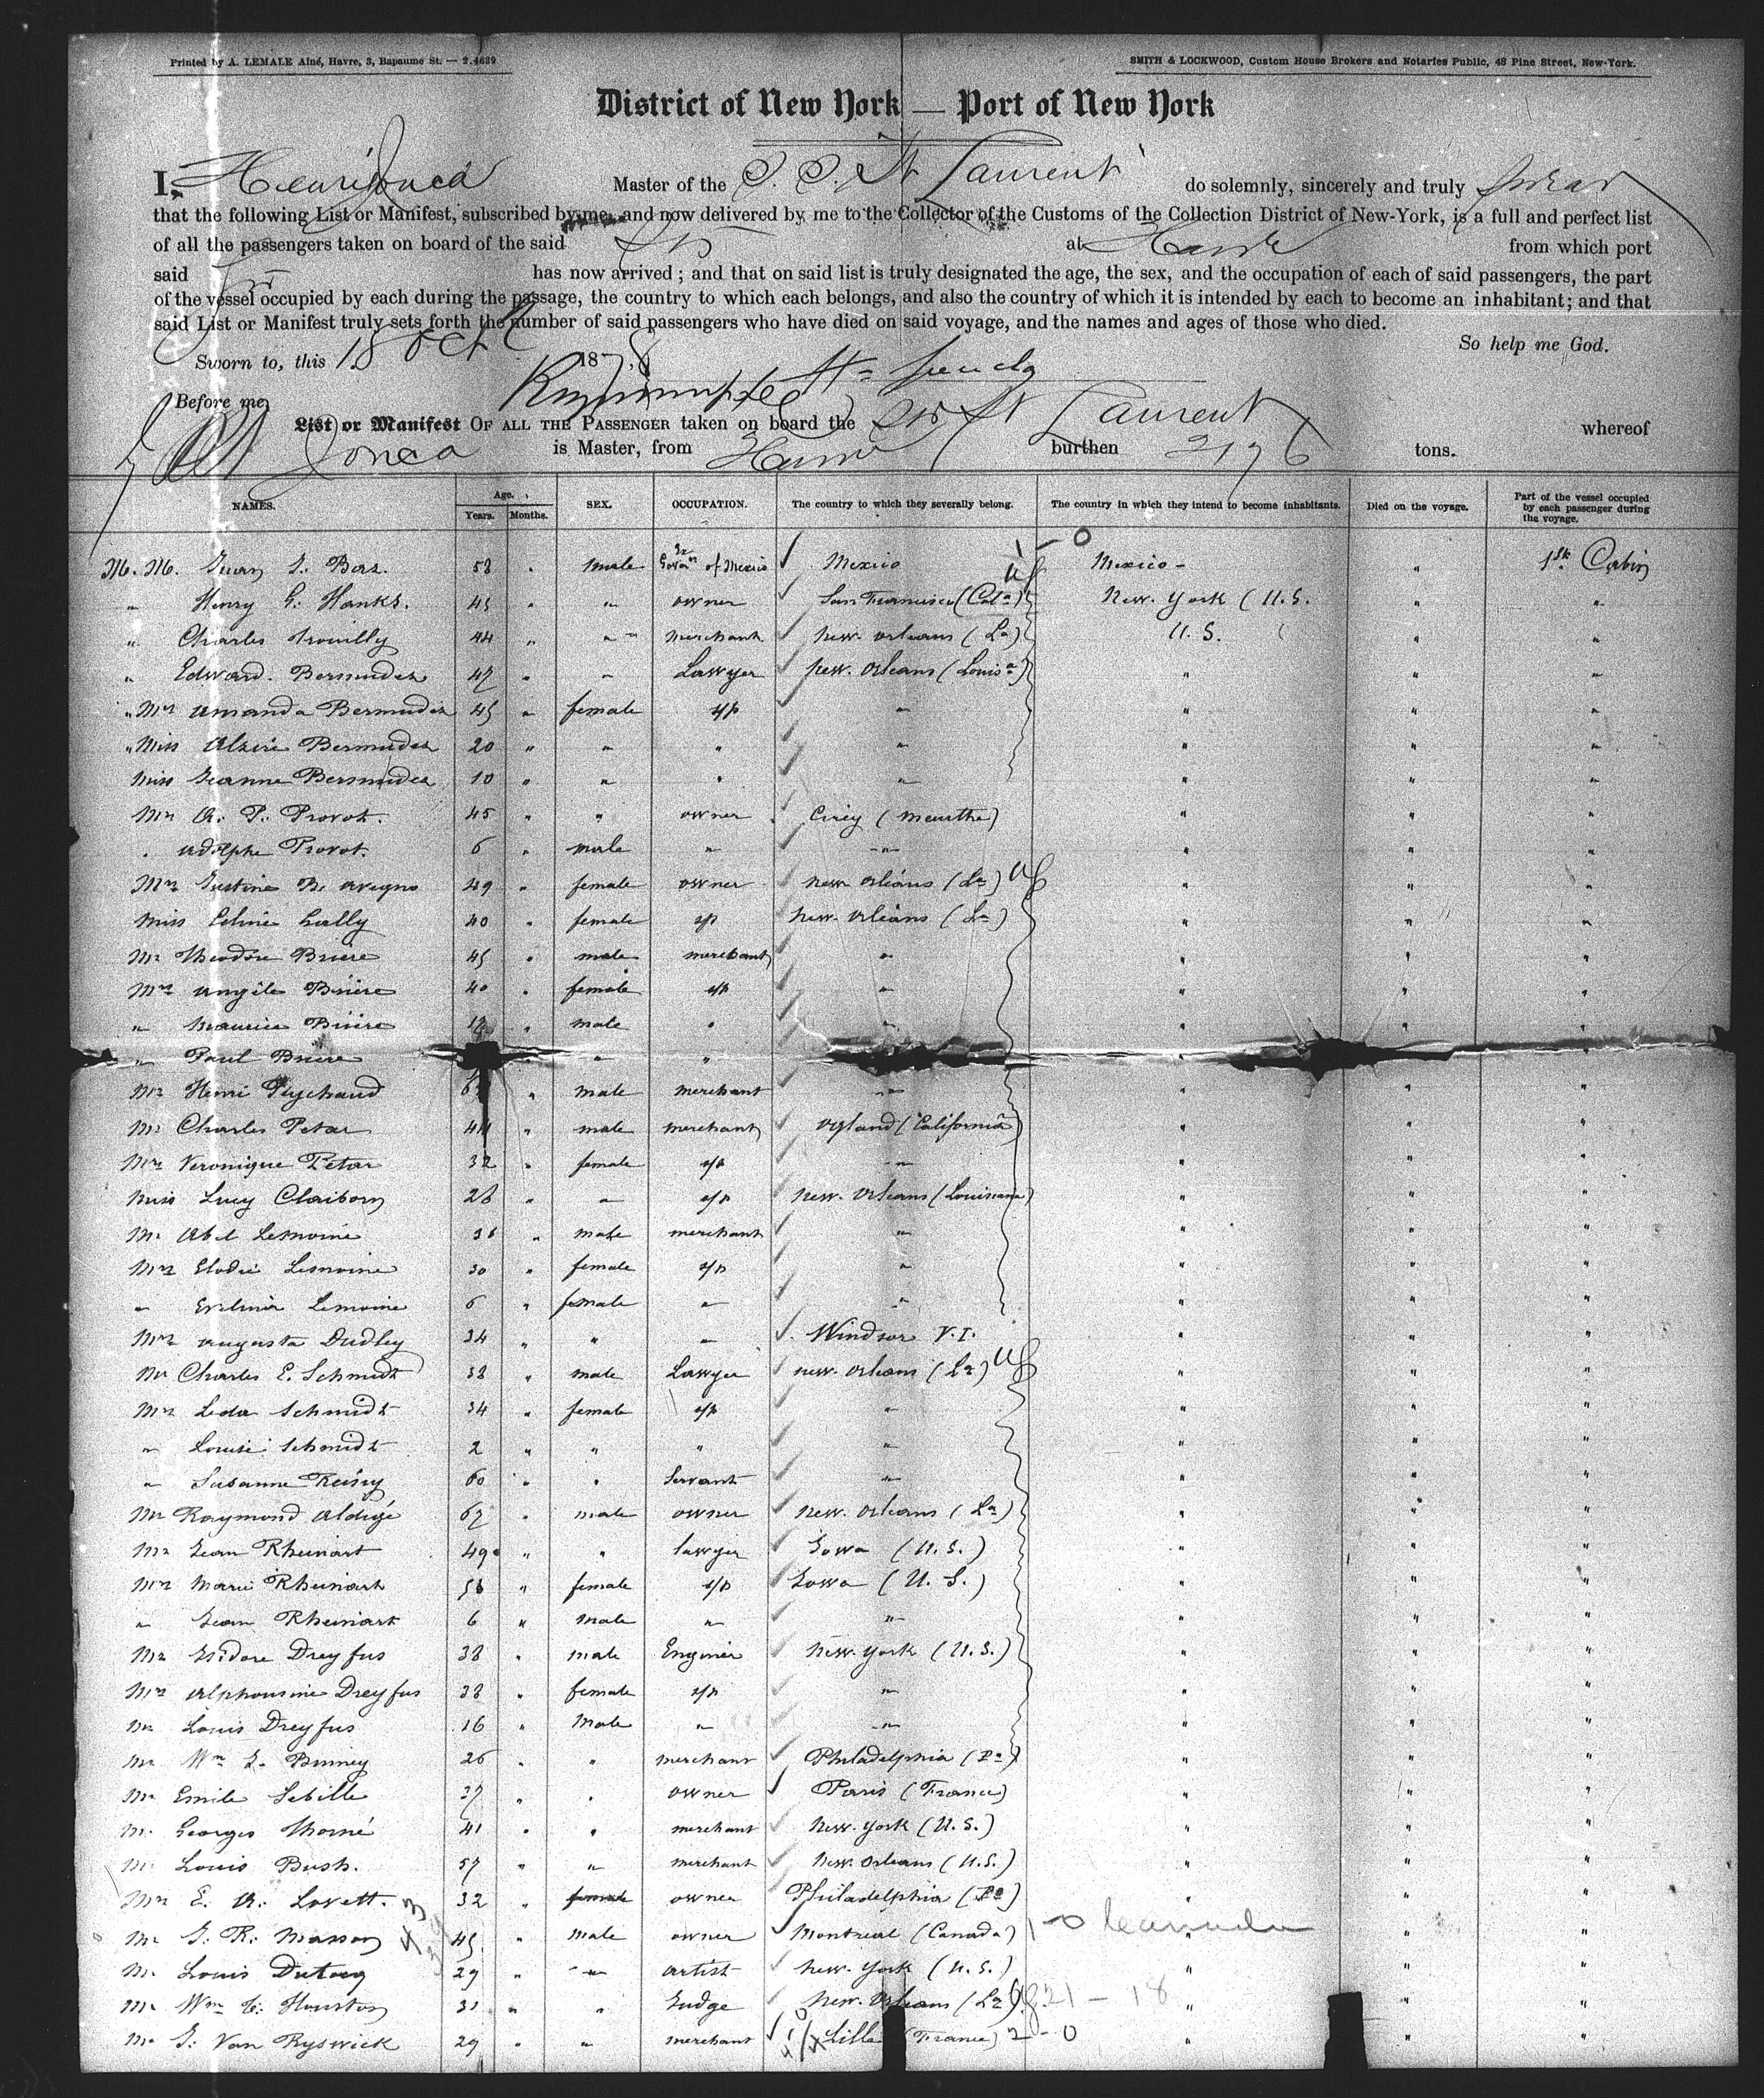 Printed by A. LEMALE Aîné, Havre, 3, Bapaume St. — 2.4639
SMITH & LOCKWOOD, Custom House Brokers and Notaries Public, 48 Pine Street, New-York.
District of New York — Port of New York
I, Master of the S. S. St Laurent do solemnly, sincerely and truly swear
that the following List or Manifest, subscribed by me, and now delivered by me to the Collector of the Customs of the Collection District of New-York, is a full and perfect list
of all the passengers taken on board of the said at Havre from which port
said has now arrived; and that on said list is truly designated the age, the sex, and the occupation of each of said passengers, the part
of the vessel occupied by each during the passage, the country to which each belongs, and also the country of which it is intended by each to become an inhabitant; and that
said List or Manifest truly sets forth the number of said passengers who have died on said voyage, and the names and ages of those who died.
So help me God.
Sworn to, this 18 Oct 187
Before me,
List or Manifest OF ALL THE PASSENGER taken on board the St Laurent whereof
is Master, from Havre burthen 2176 tons.
NAMES. Age. Years. Months. SEX. OCCUPATION. The country to which they severally belong. The country in which they intend to become inhabitants. Died on the voyage. Part of the vessel occupied by each passenger during the voyage.
M. M. 58 " male of Mexico Mexico Mexico - " 1st Cabin
" Henry G. Hanks. 45 " " owner San Francisco (Cala) New. York (U.S. " "
" Charles 44 " " merchant New. Orleans (La) U.S. " "
" Edward. Bermudez 47 " " Lawyer New. Orleans (Louisa) " " "
" Mrs Amanda Bermudez 45 " female s/p " " " "
" Miss Alzire Bermudez 20 " " " " " " "
Miss Jeanne Bermudez 10 " " " " " " "
Mrs A. P. Provot. 45 " " owner Cirey (Meurthe) " " "
" Adolphe Provot. 6 " male " " " " "
Mrs Justine B. Avegno 49 " female owner New Orléans (La) " " "
Miss Edmé Lally 40 " female s/p New. Orléans (La) " " "
Mr Theodore Brière 45 " male merchant " " " "
Mrs Angèle Brière 40 " female s/p " " " "
" Maurice Brière " male " " " " "
" Paul Brière " " " "
Mr Henri Puychaud " male merchant " " " "
Mr Charles Petar 44 " male merchant (California) " " "
Mrs Veronique Petar 32 " female s/p " " " "
Miss Lucy Claiborn 26 " " s/p New. Orleans (Louisiana) " " "
Mr Abel Lemoine " male merchant " " " "
Mrs Elodie Lemoine 30 " female s/p " " " "
" Lemoine 6 " female " " " " "
Mrs Augusta Dudley 34 " " " Windsor V.T. " " "
Mr Charles E. Schmidt 38 " male Lawyer New. Orleans (La) " " "
Mrs Leda Schmidt 34 " female s/p " " " "
" Louise Schmidt 2 " " " " " " "
" Susanne 60 " " Servant " " " "
Mr Raymond Aldigé 67 " male owner New. Orleans (La) " " "
Mr Jean Rheinart 49 " " lawyer Iowa (U.S.) " " "
Mrs Marie Rheinart " female s/p Iowa (U.S.) " " "
" Jean Rheinart 6 " male " " " " "
Mr Isidore Dreyfus 38 " male Enginer New. York (U.S.) " " "
Mrs Alphonsine Dreyfus 38 " female s/p " " " "
Mr Louis Dreyfus 16 " Male " " " " "
Mr Wm G. Binney 26 " " merchant Philadelphia (Pa) " " "
Mr Emile Sebille 37 " " owner Paris (France) " " "
Mr Georges Thorné 41 " " merchant New. York (U.S.) " " "
Mr Louis Bush. 57 " " merchant New. Orleans (U.S.) " " "
Mrs E. A. Lovett. 32 " female owner Philadelphia (Pa) " " "
Mr G. R. Masson 45 " male owner Montreal (Canada) Canada " " "
Mr Louis Dutocq 29 " " artist New. York (U.S.) " " "
Mr Wm C. Houston 31 " " Judge New. Orleans (La) 21 - 18 " " "
Mr G. Van Ryswick 29 " " merchant Lille (France) 2 - 0 " " "